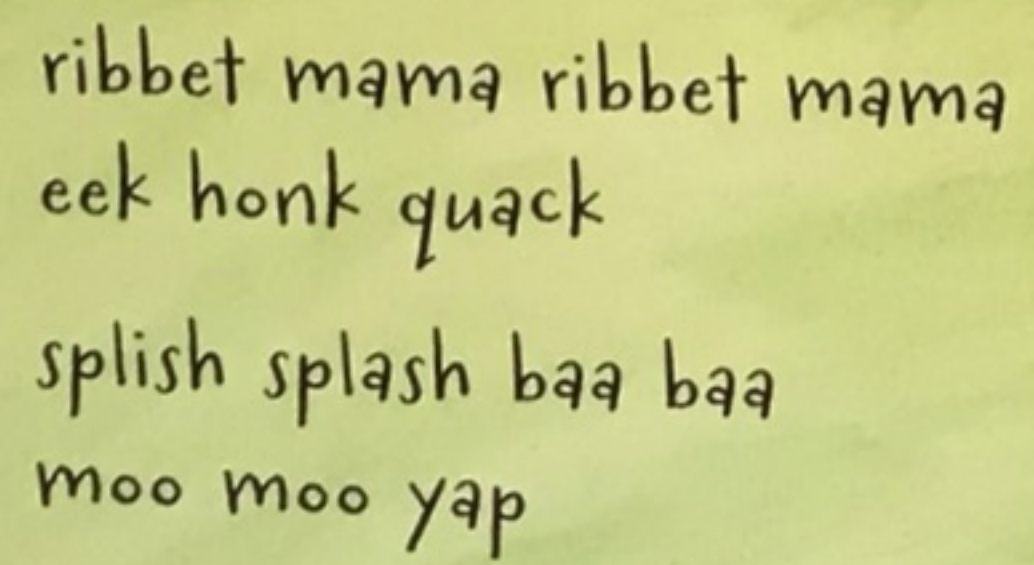 ribbet mama ribbet mama
eek honk quack
splish splash baa baa
moo moo yap